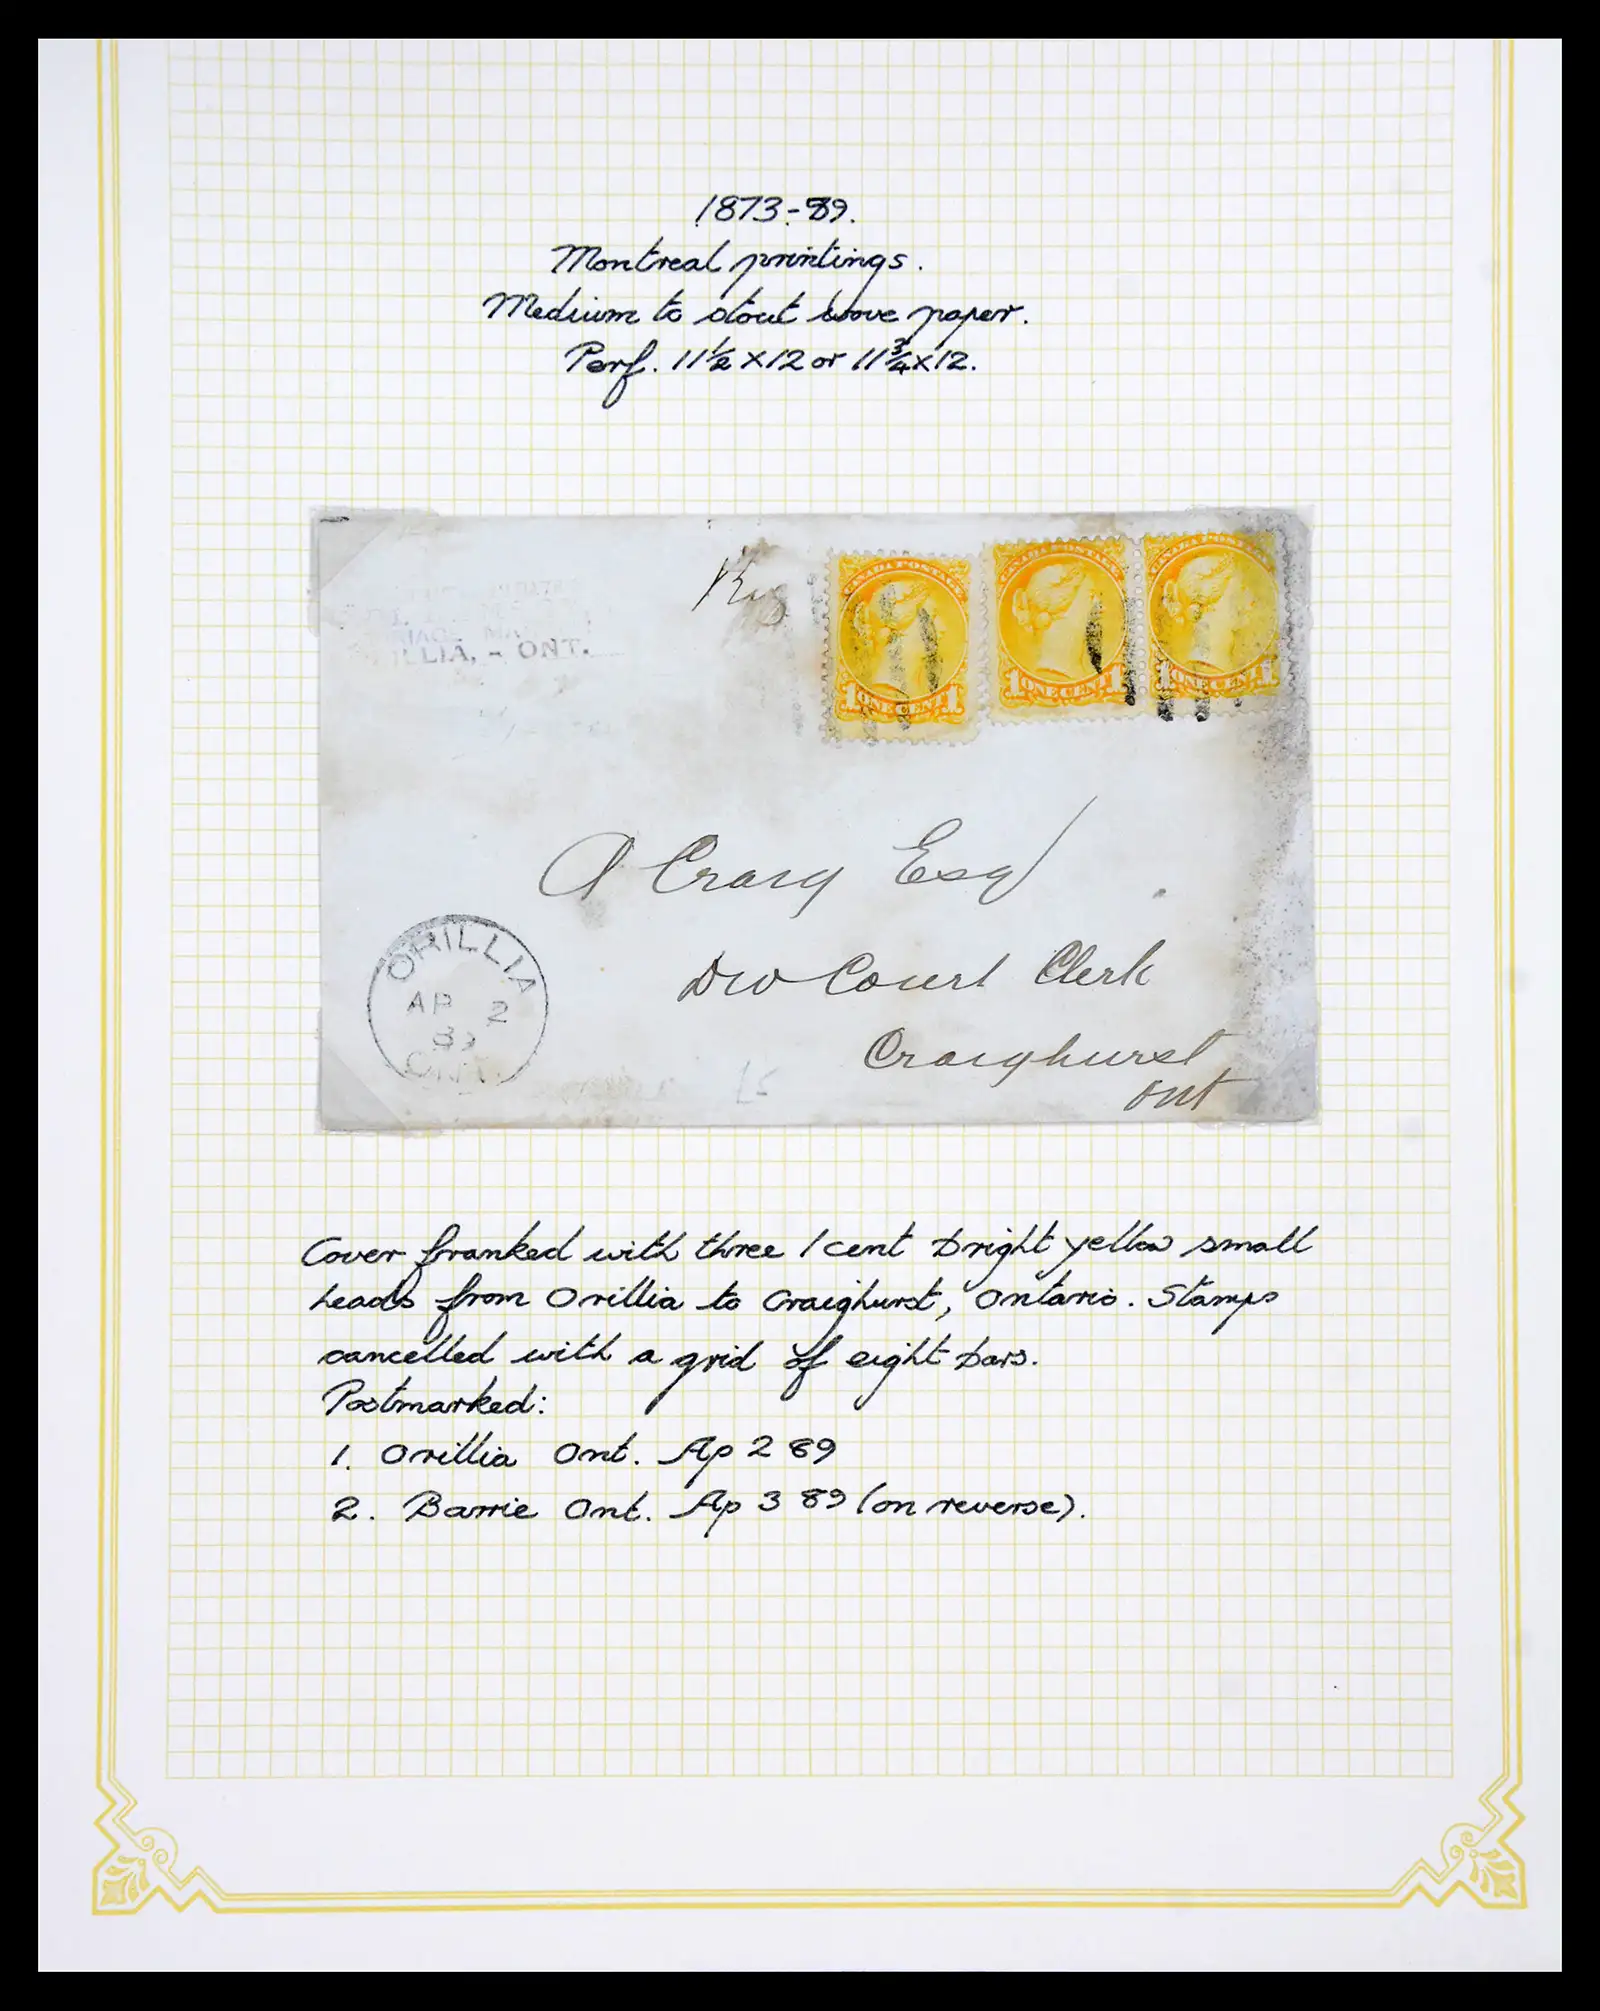 1873-89.
Montreal printings.
Medium to stout wove paper.
Perf. 11½ x 12 or 11¾ x 12.
CANADA POSTAGE
ONE CENT
1 1
CANADA POSTAGE
ONE CENT
1 1
CANADA POSTAGE
ONE CENT
1 1
ILLIA, - ONT.
A Craig Esq
Div Court Clerk
Craighurst
Ont
ORILLIA
AP 2
ONT.
Cover franked with three 1 cent bright yellow small
heads from Orillia to Craighurst, Ontario. Stamps
cancelled with a grid of eight bars.
Postmarked:
1. Orillia Ont. Ap 2 89
2. Barrie Ont. Ap 3 89 (on reverse).